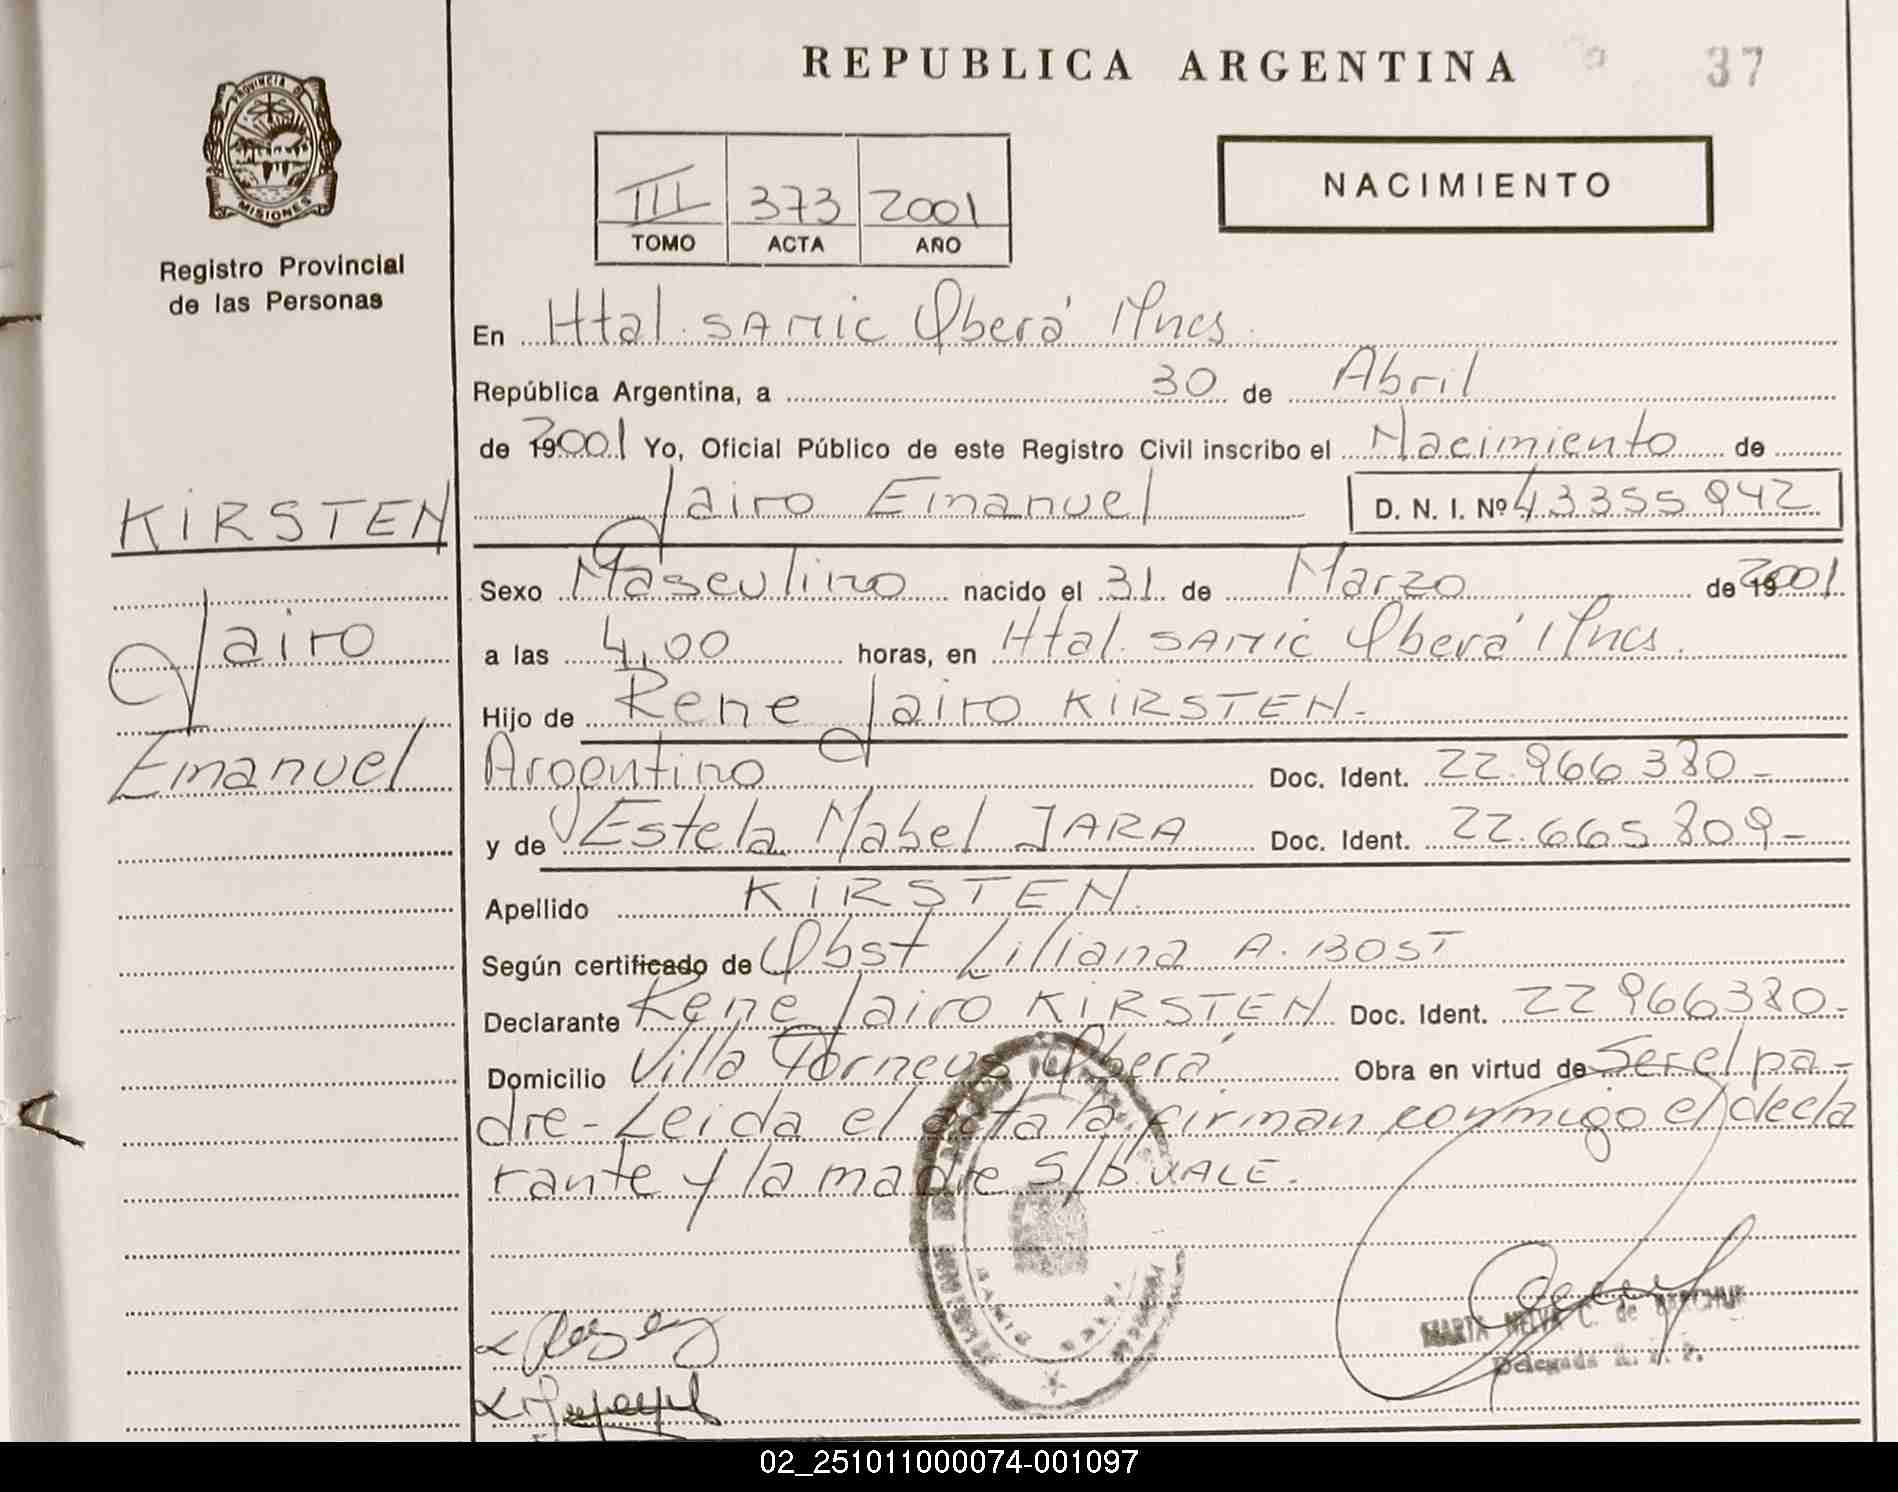 REPUBLICA ARGENTINA
37
PROVINCIA DE
MISIONES
Registro Provincial
de las Personas
III 373 2001
TOMO ACTA AÑO
NACIMIENTO
En Htal. SAMIC Oberá Mnes.
República Argentina, a 30 de Abril
de 192001 Yo, Oficial Público de este Registro Civil inscribo el Nacimiento de
Jairo Emanuel D. N. I. Nº 43355942
KIRSTEN
Jairo
Emanuel
Sexo Masculino nacido el 31 de Marzo de 192001
a las 4,00 horas, en Htal. SAMIC Oberá Mnes.
Hijo de Rene Jairo KIRSTEN.-
Argentino Doc. Ident. 22.966380-
y de Estela Mabel JARA Doc. Ident. 22.665809-
Apellido KIRSTEN.
Según certificado de Obst Liliana A. BOST
Declarante Rene Jairo KIRSTEN Doc. Ident. 22966380-
Domicilio Villa Torneus Oberá Obra en virtud de Ser el pa-
dre- Leida el acta la firman conmigo el decla
rante y la madre S/b. VALE.
MARTA NELVA C. de
Delegada R. P. P.
02_251011000074-001097